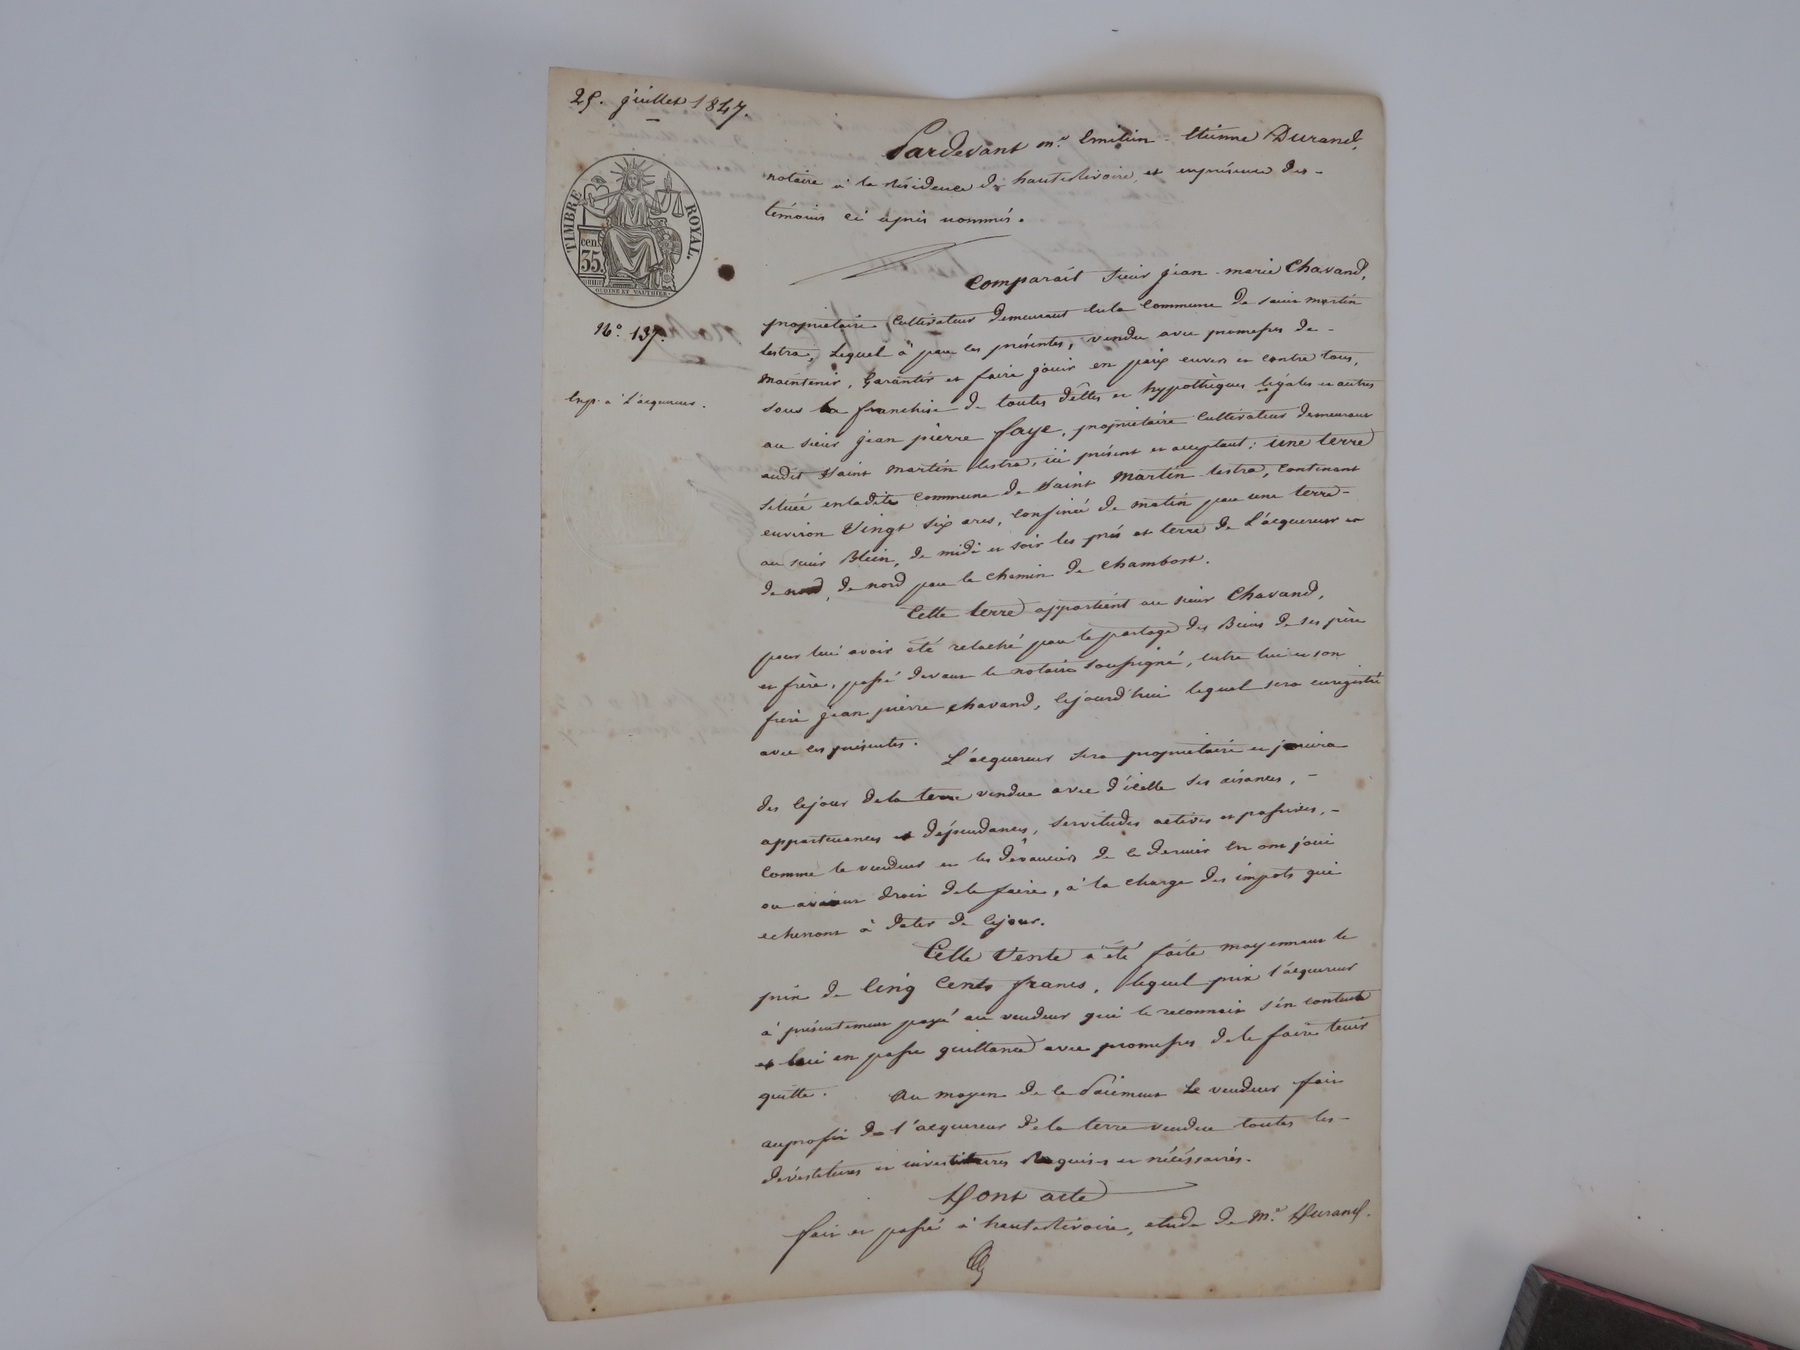 25. juillet 1847.
TIMBRE ROYAL.
cen.
35.
OUDINÉ ET VAUTHIER.
No. 137.
Exp. à l'acquereur.
Pardevant me. Emilien-Etienne Durand,
notaire à la résidence de hauterivoire, et enprésence des-
témoins ci après nommés.
Comparait sieur jean-marie Chavand,
propriétaire cultivateur demeurant enla commune de saint martin
lestra, lequel à par ces présentes, vendu avec promesses de-
maintenir, garantir et faire jouir en paix envers et contre tous,
sous la franchise de toutes dêttes et hypothèques légales et autres
au sieur jean pierre faye, propriétaire cultivateur demeurant
audit Saint martin lestra, ici présent et acceptant; une terre
située enladite commune de Saint Martin-lestra, contenant
environ Vingt six ares, confinée de matin par une terre-
au sieur Blein, de midi et soir les prés et terre de l'acquereur et
de nord, de nord par le chemin de Chambost.
Cette terre appartient au sieur Chavand,
pour lui avoir été relaché par le partage des Biens de ses père
et frère, passé devant le notaire soussigné, entre lui et son
frère jean pierre chavand, cejourd'hui lequel sera enregistré
avec ces présentes.
L'acquereur sera propriétaire et jouira
dès cejour dela terre vendue avec d'icelle ses aisances,-
appartenances et dépendances, servitudes actives et passives,-
comme le vendeur et les devanciers de ce dernier en ont joui
ou avaient droit dele faire, à la charge des impots qui
echerront à dater de cejour.
Cette Vente a été faite moyennant le
prix de Cinq Cents francs, lequel prix l'acquereur
à présentement payé au vendeur qui le reconnait s'en contente
et lui en passe quittance avec promesses dele faire tenir
quitte.
Au moyen de ce Paiement le vendeur fait
auprofit de l'acquereur dela terre vendue toutes les-
dévestitures et investitures requises et nécéssaires.
Dont acte
fait et passé à hauterivoire, étude de Me. Durand.